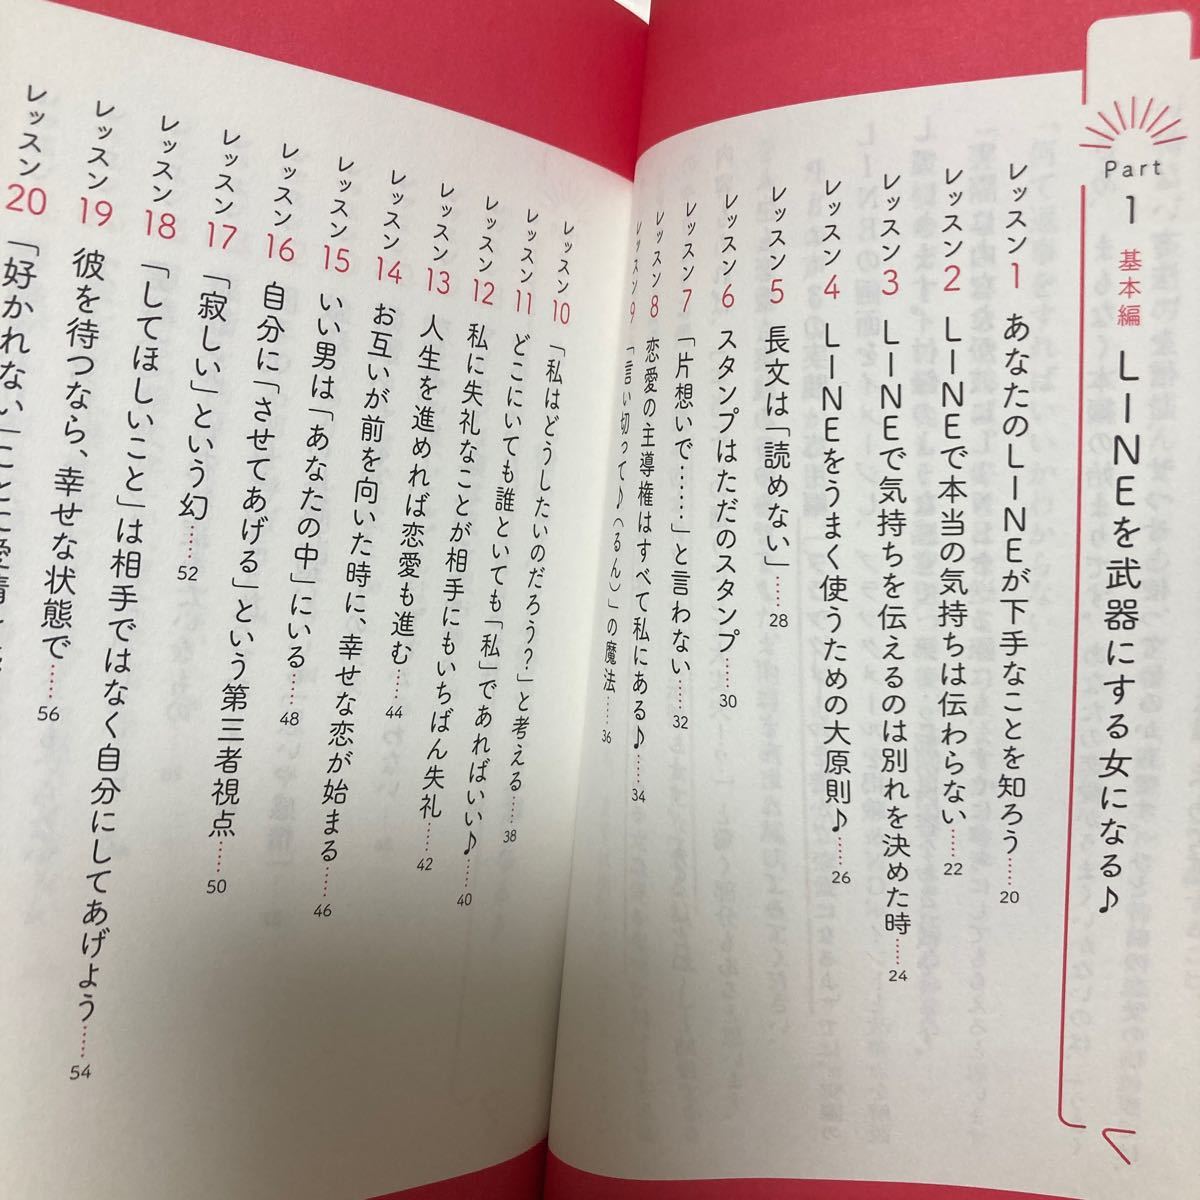 Part 1 基本編 LINEを武器にする女になる♪
レッスン1 あなたのLINEが下手なことを知ろう……20
レッスン2 LINEで本当の気持ちは伝わらない……22
レッスン3 LINEで気持ちを伝えるのは別れを決めた時……24
レッスン4 LINEをうまく使うための大原則♪……26
レッスン5 長文は「読めない」……28
レッスン6 スタンプはただのスタンプ……30
レッスン7 「片想いで……」と言わない……32
レッスン8 恋愛の主導権はすべて私にある♪……34
レッスン9 「言い切って♪(るん)」の魔法……36
レッスン10 「私はどうしたいのだろう?」と考える……38
レッスン11 どこにいても誰といても「私」であればいい♪……40
レッスン12 私に失礼なことが相手にもいちばん失礼……42
レッスン13 人生を進めれば恋愛も進む……44
レッスン14 お互いが前を向いた時に、幸せな恋が始まる……46
レッスン15 いい男は「あなたの中」にいる……48
レッスン16 自分に「させてあげる」という第三者視点……50
レッスン17 「寂しい」という幻……52
レッスン18 「してほしいこと」は相手ではなく自分にしてあげよう……54
レッスン19 彼を待つなら、幸せな状態で……56
レッスン20 「好かれない」ことに愛情